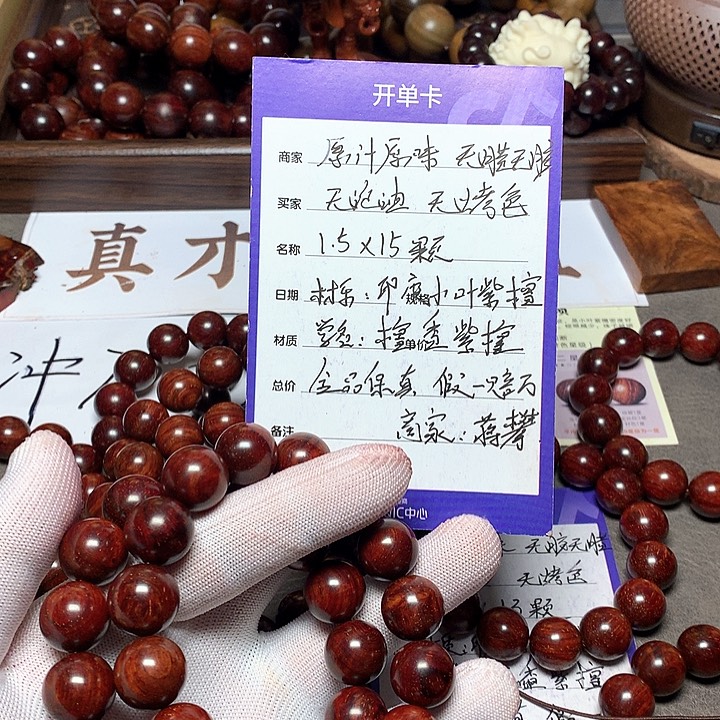 开单卡
商家 原汁原味 无腊无胶
买家 无泡油 无烤色
名称 1.5×15颗
日期 材杀:印度小叶紫檀
规格
材质 学名:檀香紫檀
单价
总价 全品保真 假一赔万
备注 商家:蒋攀
IC中心
真才
冲
无胶无腊
无烤色
15颗
紫檀
香紫檀